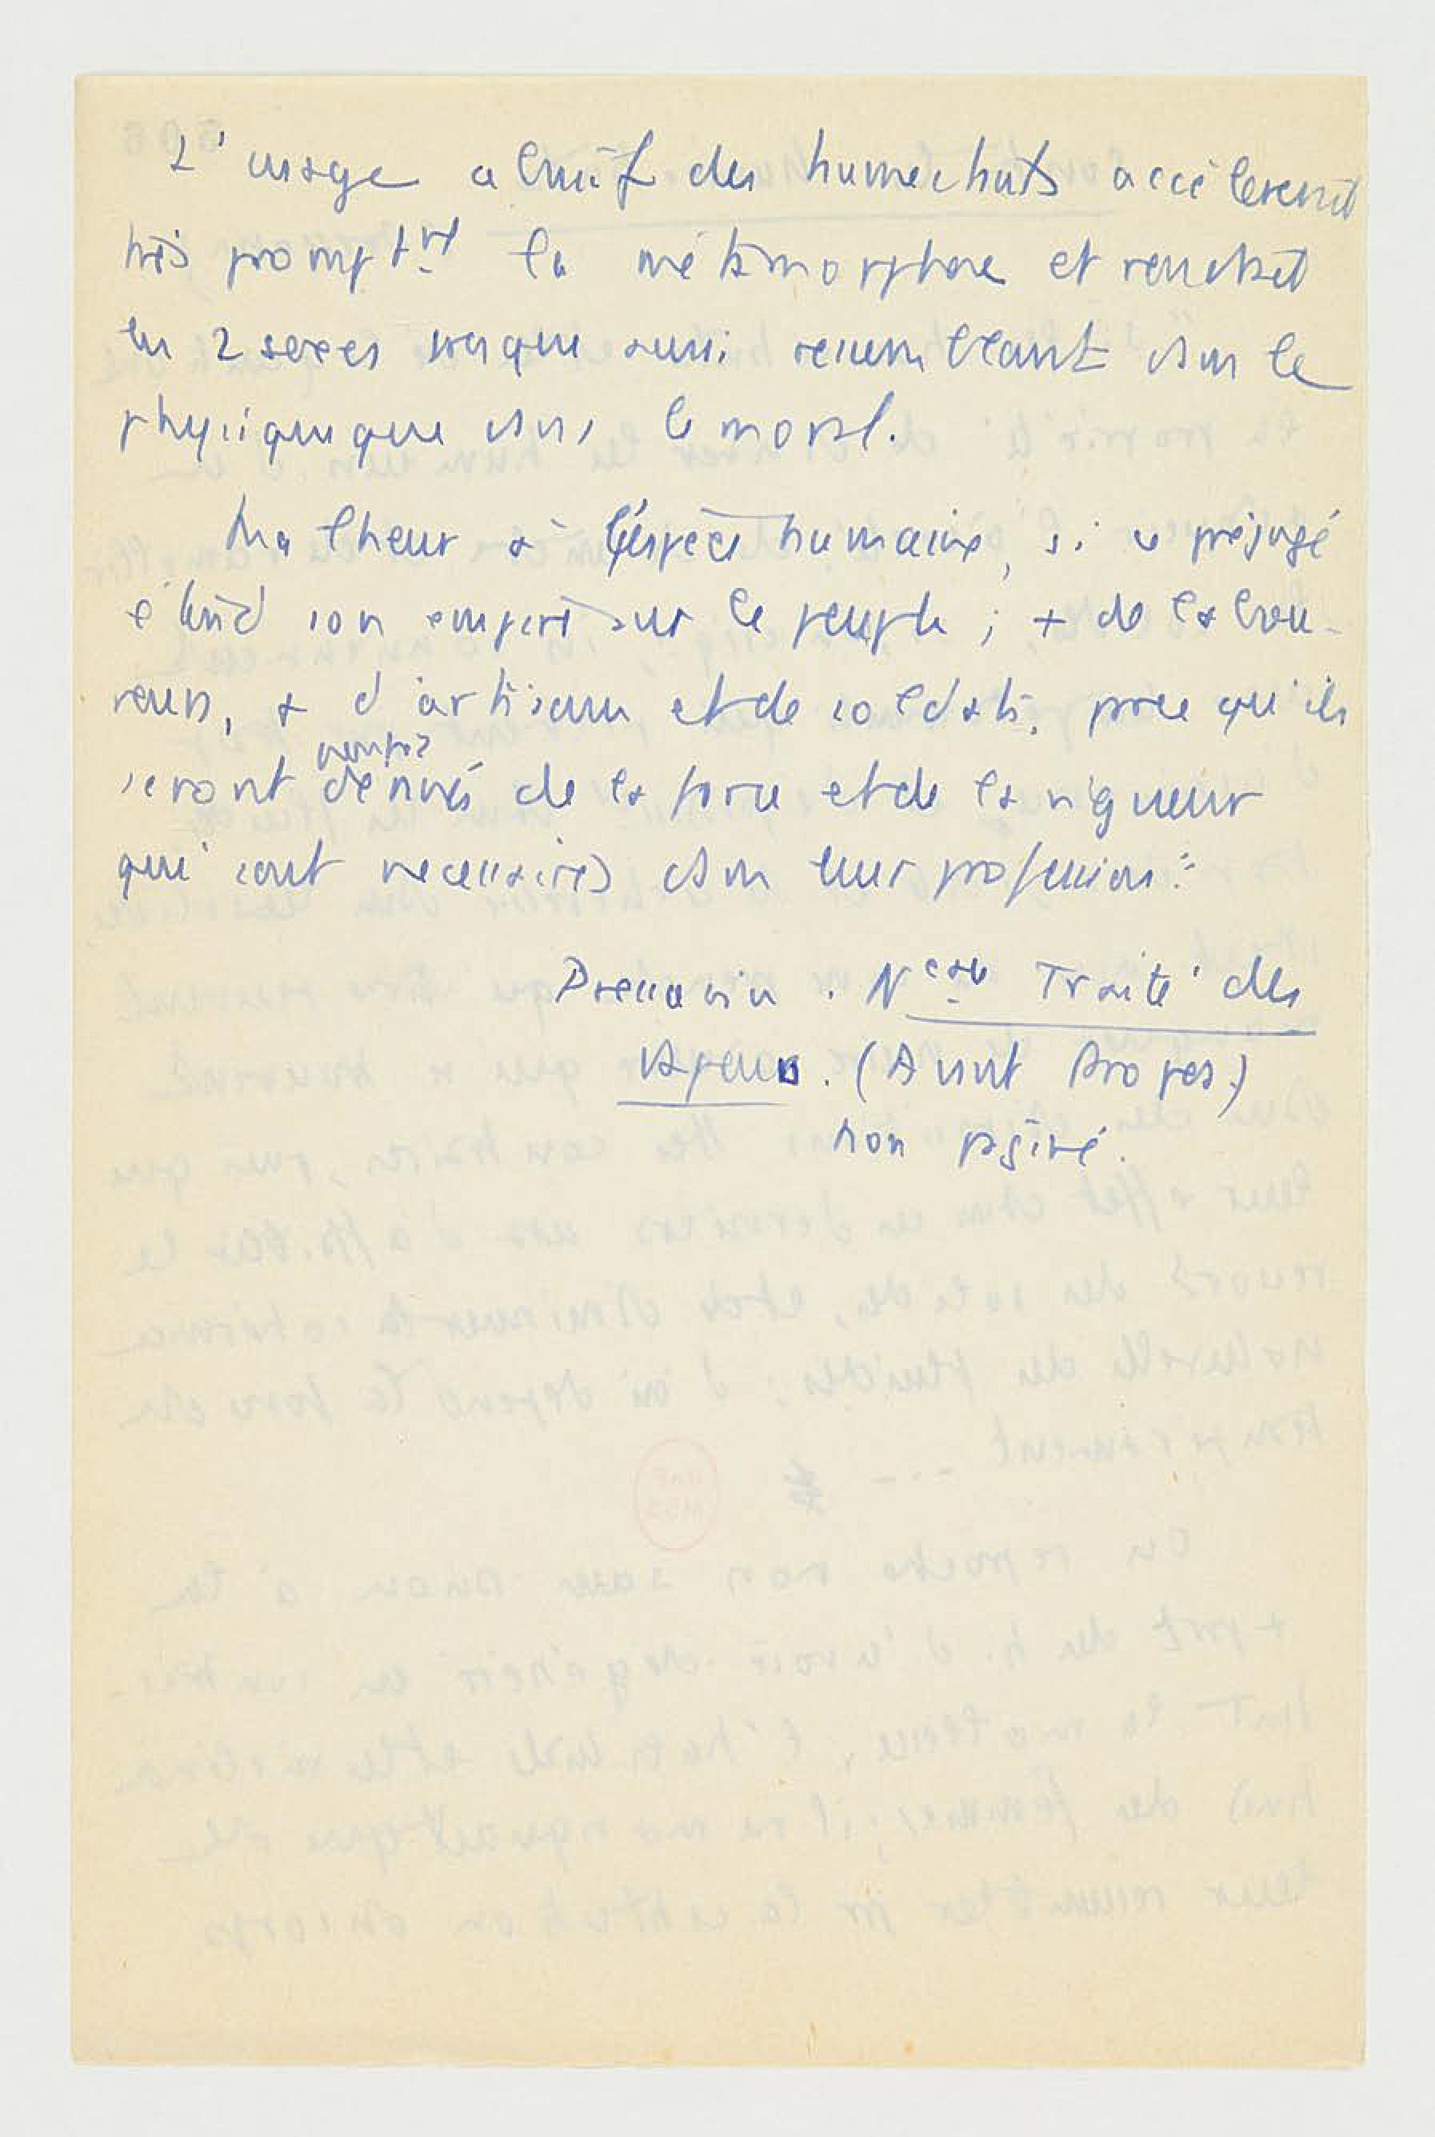 L'usage abusif des humectants accélèrerait
très prompt.nt la métamorphose et rendrait
les 2 sexes presque aussi ressemblant dans le
physique que dans le moral.
Malheur à l'espèce humaine, si ce préjugé
étend son empire sur le peuple ; + de labou-
reurs, + d'artisans et de soldats, parce qu'ils
seront bientôt dénués de la force et de la vigueur
qui sont nécessaires dans leur profession."
Pressavin. Neau Traité des
Vapeurs. (Avant Propos)
non paginé.